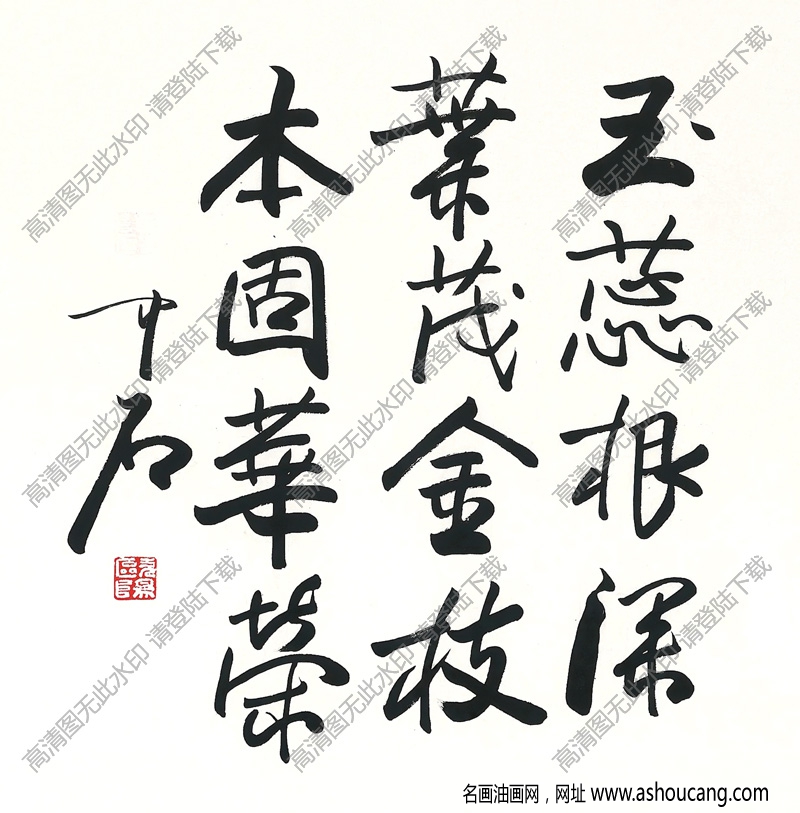 玉蕊根深
葉茂金枝
本固華榮
中石
高清图无此水印 请登陆下载
高清图无此水印 请登陆下载
高清图无此水印 请登陆下载
高清图无此水印 请登陆下载
高清图无此水印 请登陆下载
高清图无此水印 请登陆下载
高清图无此水印 请登陆下载
高清图无此水印 请登陆下载
高清图无此水印 请登陆下载
名画油画网，网址 www.ashoucang.com